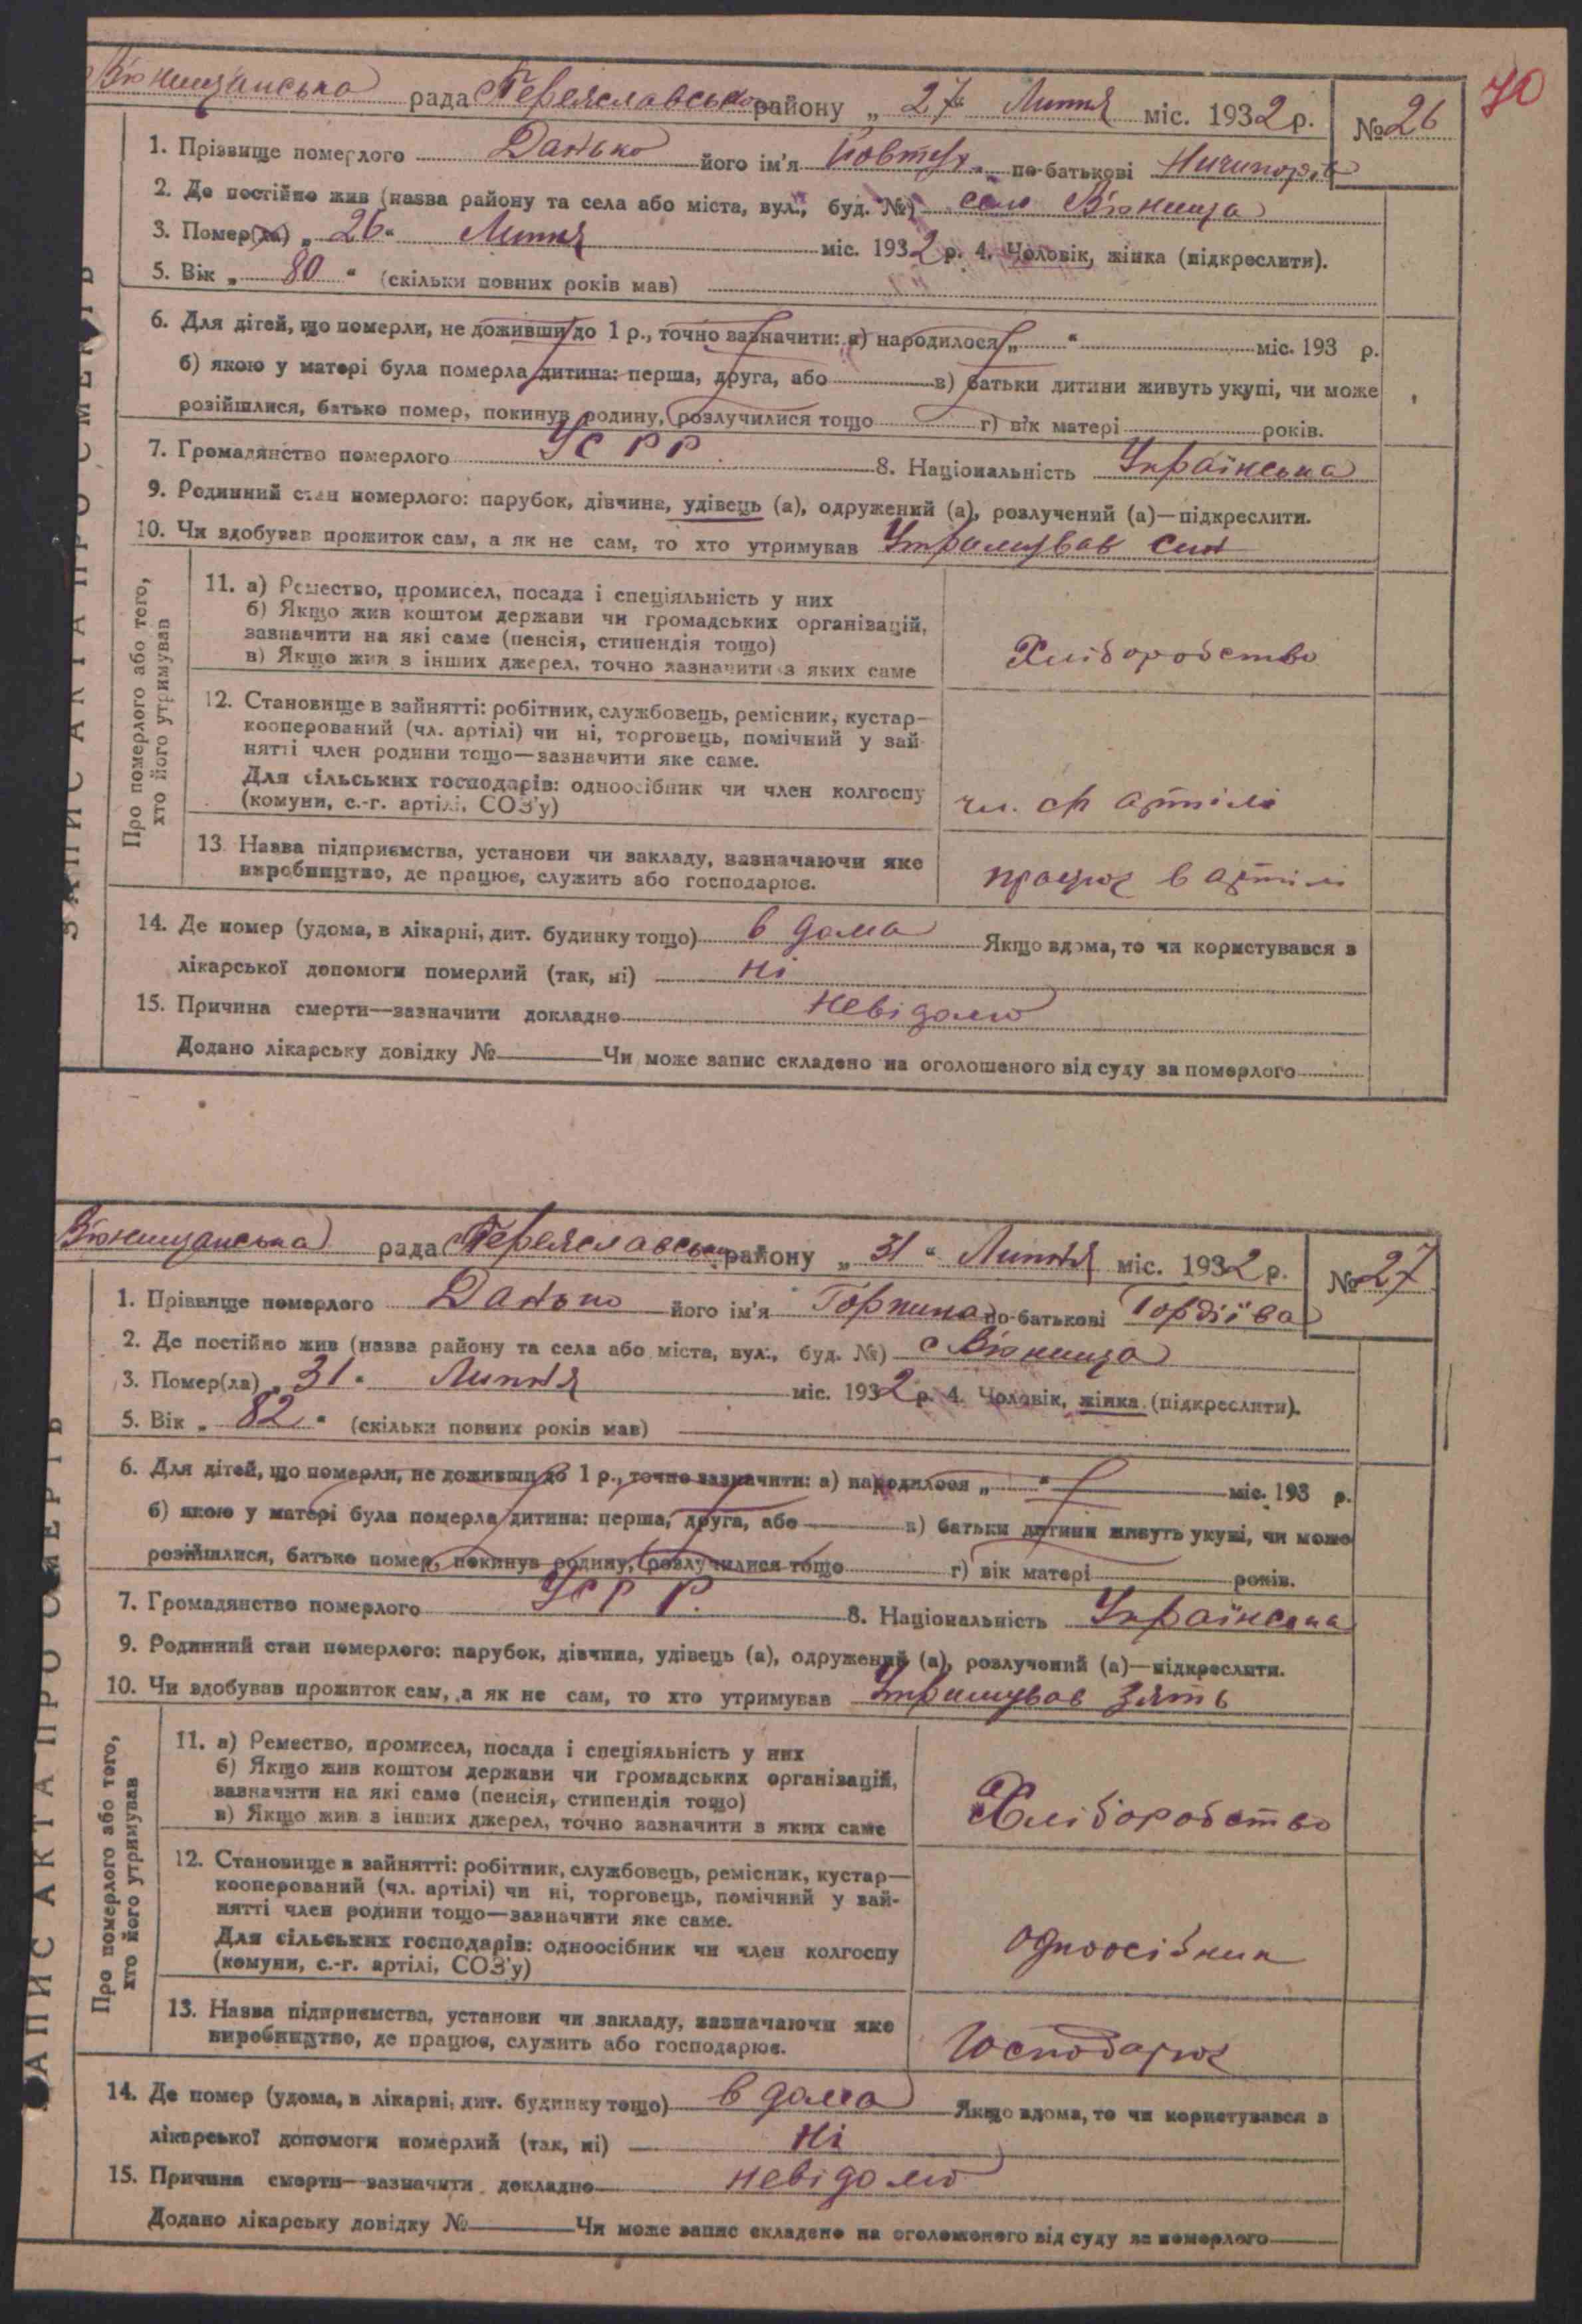 В'юнищанська рада Переяславсько району „ 27 “ Липня міс. 1932 р. № 26
70
1. Прізвище померлого Данько його ім'я Йовтух по-батькові Ничипорів
2. Де постійно жив (назва району та села або міста, вул., буд. №) село В'юнища
3. Помер(ла) „ 26 “ Липня міс. 1932 р. 4. Чоловік, жінка (підкреслити).
5. Вік „ 80 “ (скільки повних років мав)
6. Для дітей, що померли, не доживши до 1 р., точно зазначити: а) народилося „ “ міс. 193 р.
б) якою у матері була померла дитина: перша, друга, або в) батьки дитини живуть укупі, чи може
розійшлися, батько помер, покинув родину, розлучилися тощо г) вік матері років.
7. Громадянство померлого УСРР. 8. Національність Українська
9. Родинний стан померлого: парубок, дівчина, удівець (а), одружений (а), розлучений (а)—підкреслити.
10. Чи здобував прожиток сам, а як не сам, то хто утримував Утримував син
ЗАПИС АКТА ПРО СМЕРТЬ
Про померлого або того, хто його утримував
11. а) Ремество, промисел, посада і спеціяльність у них
б) Якщо жив коштом держави чи громадських організацій,
зазначити на які саме (пенсія, стипендія тощо)
в) Якщо жив з інших джерел, точно зазначити з яких саме
Хліборобство
12. Становище в зайнятті: робітник, службовець, ремісник, кустар—
кооперований (чл. артілі) чи ні, торговець, помічний у зай-
нятті член родини тощо—зазначити яке саме.
Для сільських господарів: одноосібник чи член колгоспу
(комуни, с.-г. артілі, СОЗ'у)
чл. артілі
13. Назва підприємства, установи чи закладу, зазначаючи яке
виробництво, де працює, служить або господарює.
працює в артілі
14. Де помер (удома, в лікарні, дит. будинку тощо) в дома Якщо вдома, то чи користувався з
лікарської допомоги померлий (так, ні) ні
15. Причина смерти—зазначити докладно невідомо
Додано лікарську довідку № Чи може запис складено на оголошеного від суду за померлого
В'юнищанська рада Переяславськ району „ 31 “ Липня міс. 1932 р. № 27
1. Прізвище померлого Данько його ім'я Горпина по-батькові Гордіїва
2. Де постійно жив (назва району та села або міста, вул., буд. №) с В'юнища
3. Помер(ла) „ 31 “ Липня міс. 1932 р. 4. Чоловік, жінка (підкреслити).
5. Вік „ 82 “ (скільки повних років мав)
6. Для дітей, що померли, не доживши до 1 р., точно зазначити: а) народилося „ “ міс. 193 р.
б) якою у матері була померла дитина: перша, друга, або в) батьки дитини живуть укупі, чи може
розійшлися, батько помер, покинув родину, розлучилися тощо г) вік матері років.
7. Громадянство померлого УСРР. 8. Національність Українська
9. Родинний стан померлого: парубок, дівчина, удівець (а), одружений (а), розлучений (а)—підкреслити.
10. Чи здобував прожиток сам, а як не сам, то хто утримував Утримував зять
ЗАПИС АКТА ПРО СМЕРТЬ
Про померлого або того, хто його утримував
11. а) Ремество, промисел, посада і спеціяльність у них
б) Якщо жив коштом держави чи громадських організацій,
зазначити на які саме (пенсія, стипендія тощо)
в) Якщо жив з інших джерел, точно зазначити з яких саме
Хліборобство
12. Становище в зайнятті: робітник, службовець, ремісник, кустар—
кооперований (чл. артілі) чи ні, торговець, помічний у зай-
нятті член родини тощо—зазначити яке саме.
Для сільських господарів: одноосібник чи член колгоспу
(комуни, с.-г. артілі, СОЗ'у)
одноосібник
13. Назва підприємства, установи чи закладу, зазначаючи яке
виробництво, де працює, служить або господарює.
Господарює
14. Де помер (удома, в лікарні, дит. будинку тощо) в дома Якщо вдома, то чи користувався з
лікарської допомоги померлий (так, ні) Ні
15. Причина смерти—зазначити докладно невідомо
Додано лікарську довідку № Чи може запис складено на оголошеного від суду за померлого